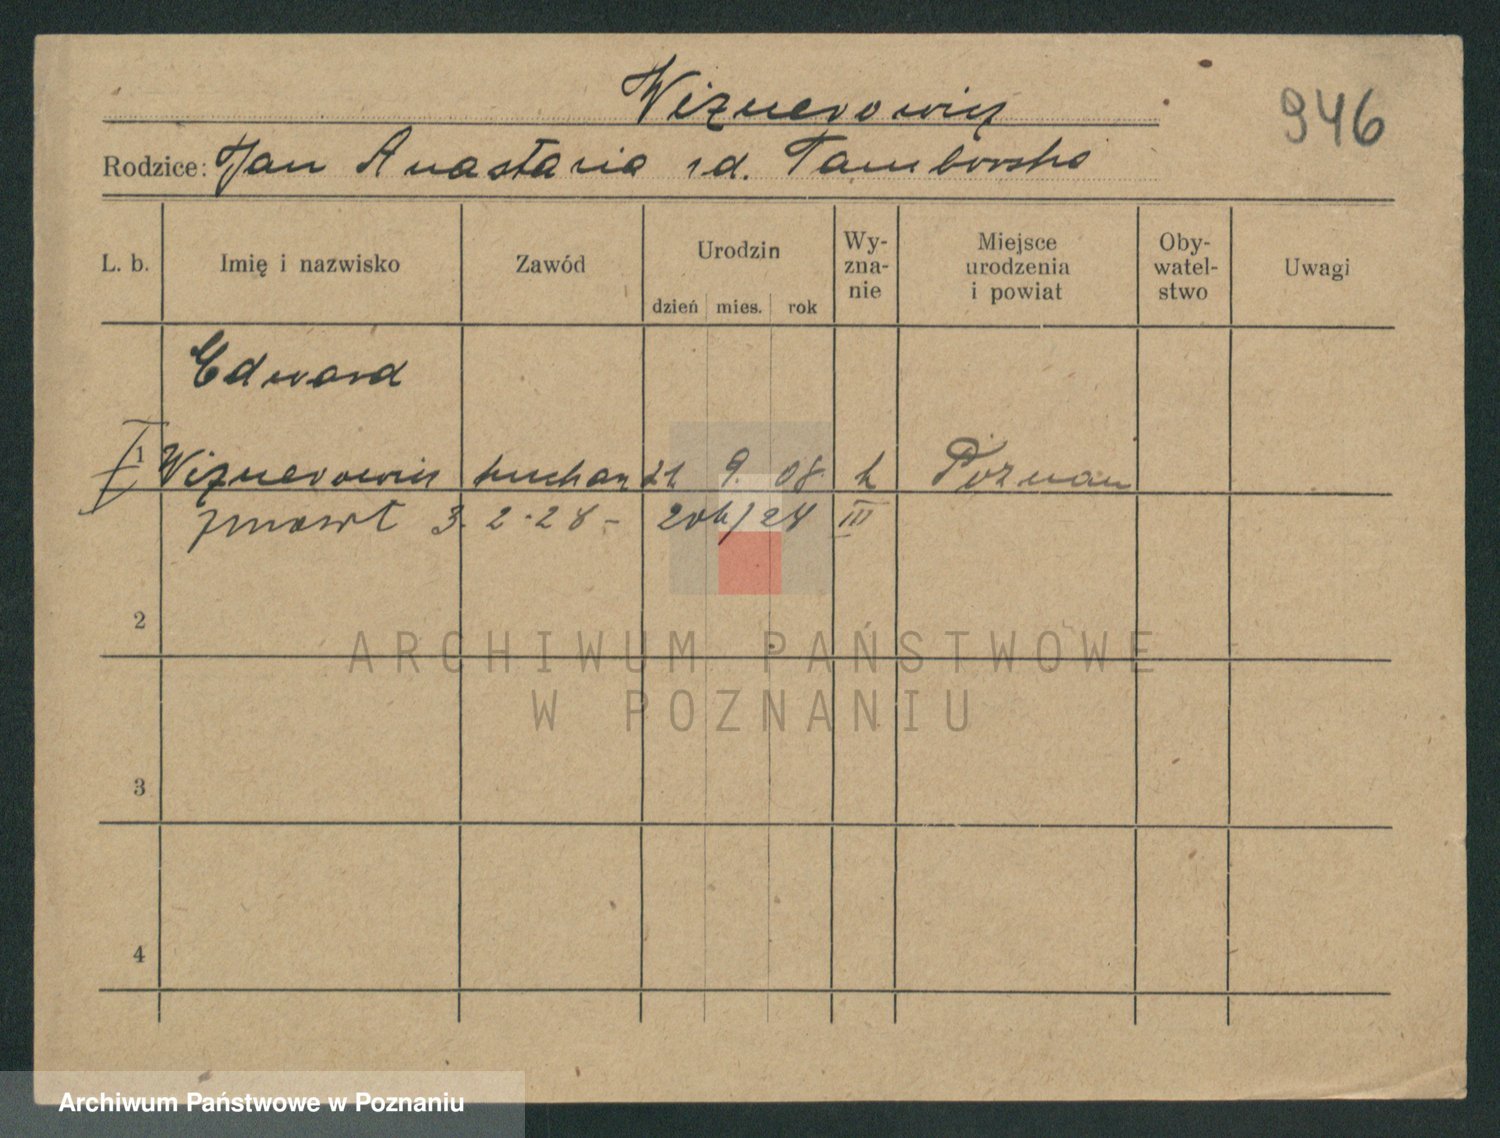 Wiznerowicz
946
Rodzice: Jan Anastazia rd. Tamborska
L. b. Imię i nazwisko Zawód Urodzin dzień mies. rok Wy-zna-nie Miejsce urodzenia i powiat Oby-watel-stwo Uwagi
Edward
1 Wiznerowicz kucharz 21 9. 08. k Poznań
zmarł 3. 2. 28 - 206/28 III
2
3
4
ARCHIWUM PAŃSTWOWE
W POZNANIU
Archiwum Państwowe w Poznaniu